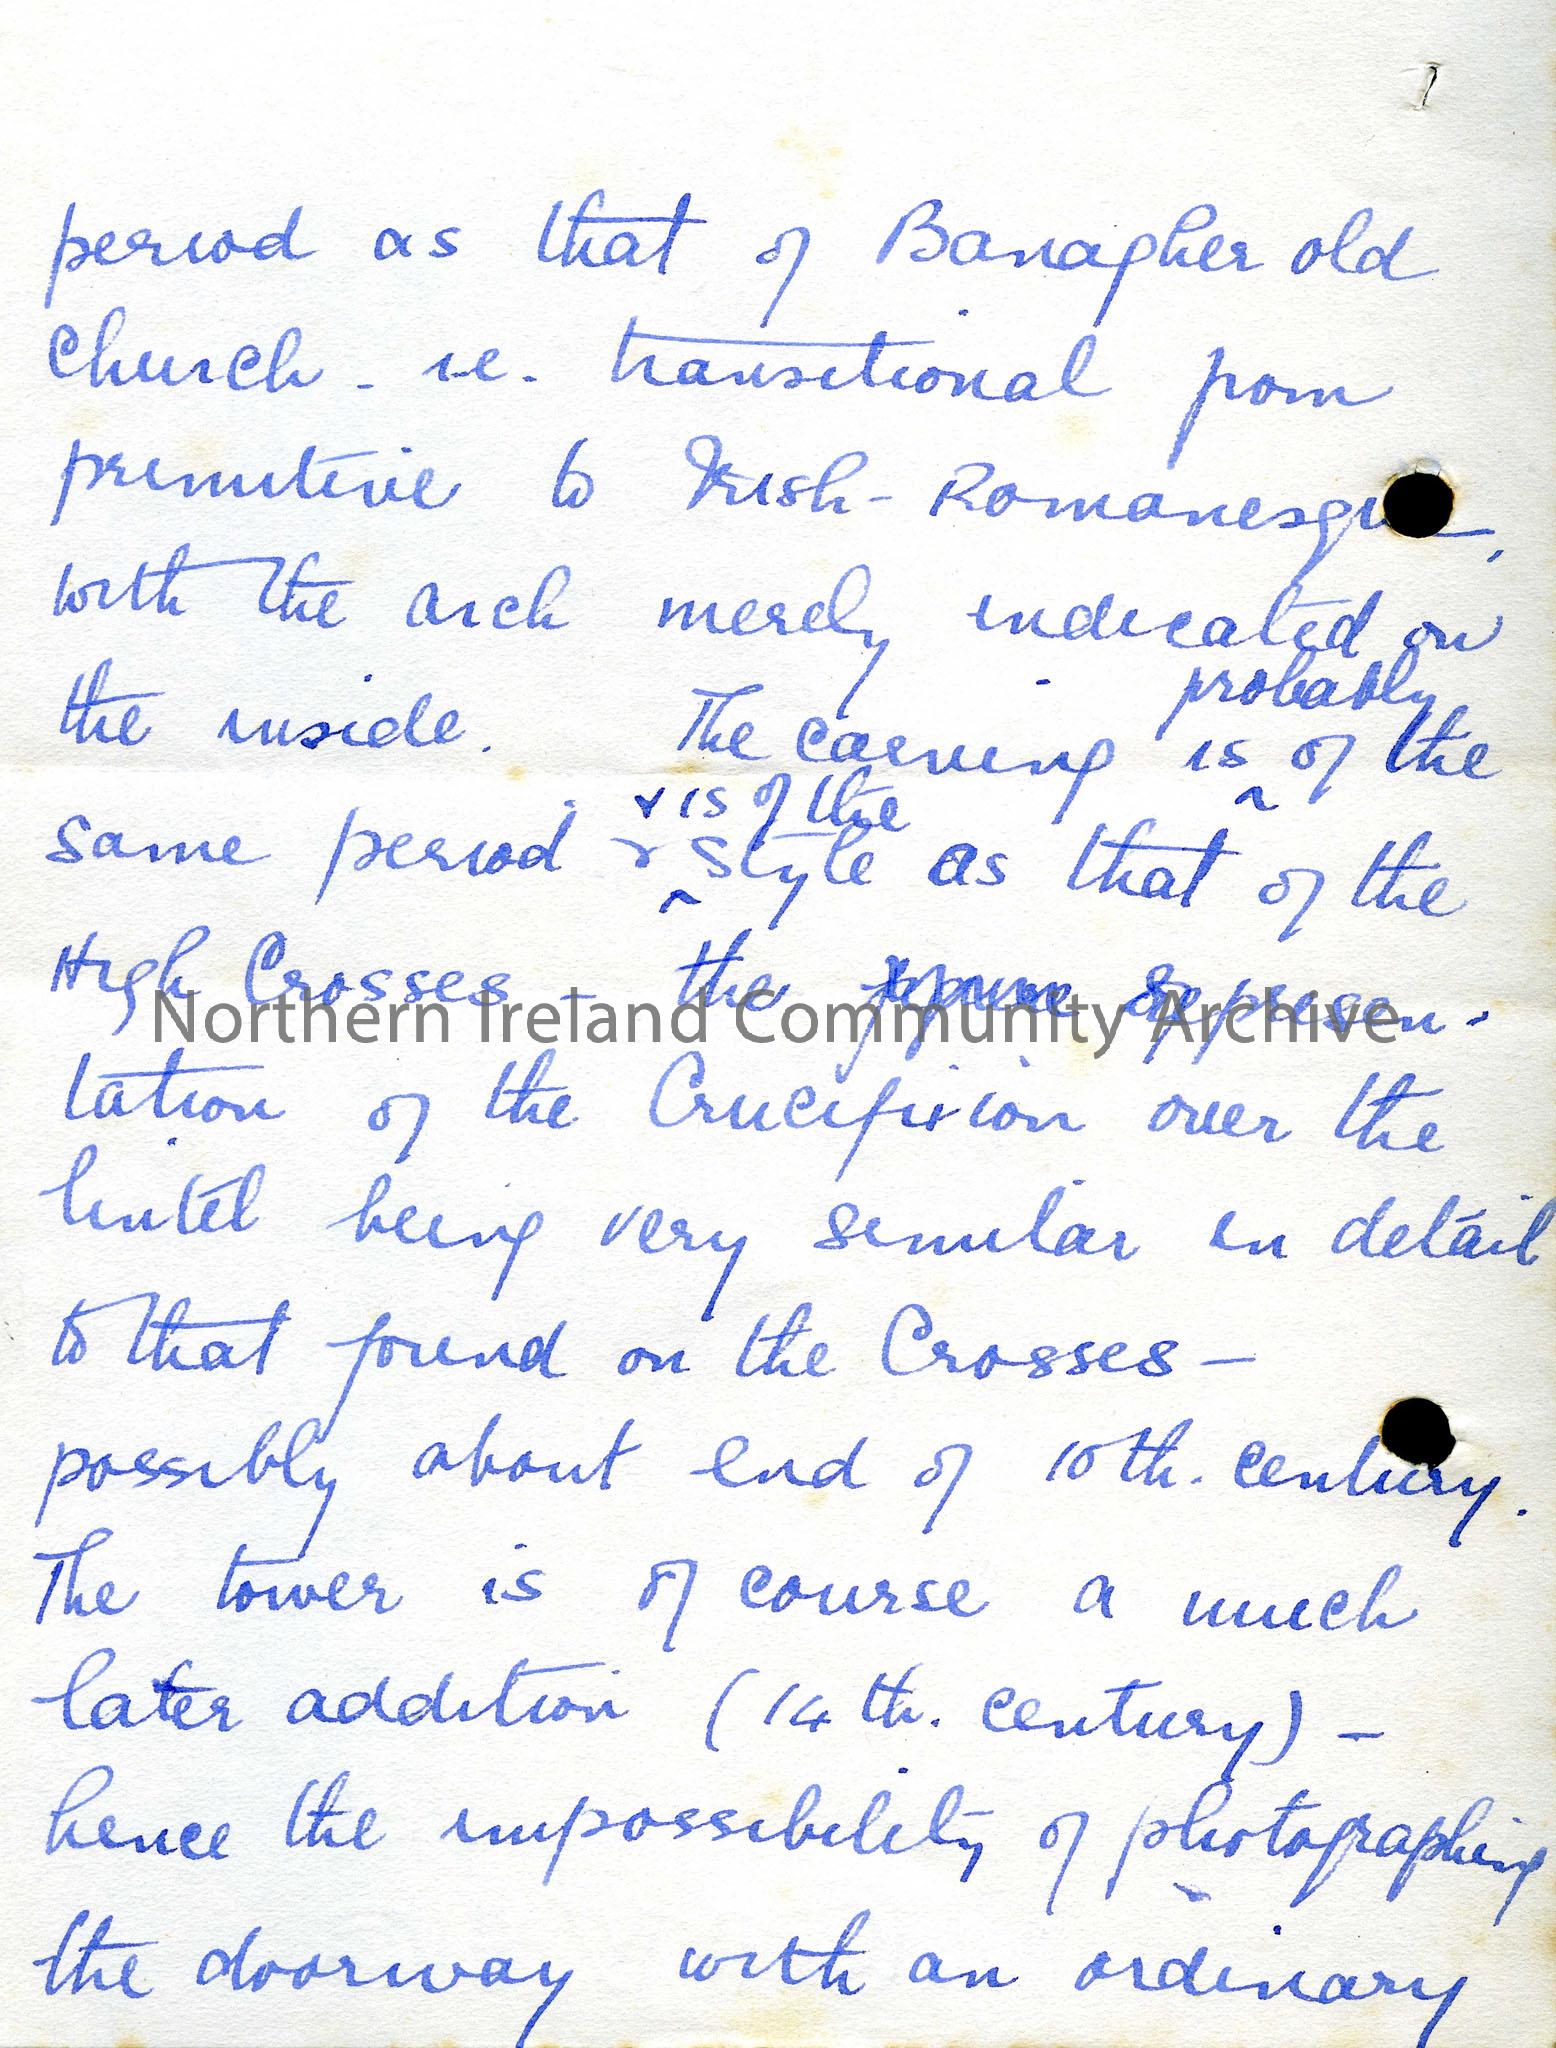 period as that of Banagher old
Church - i.e. transitional from
primitive to Irish-Romanesque,
with the arch merely indicated on
the inside. The carving is probably of the
same period & is of the style as that of the
High Crosses - the represen-
tation of the Crucifixion over the
lintel being very similar in detail
to that found on the Crosses -
possibly about end of 10th. century.
The tower is of course a much
later addition (14th. century) -
hence the impossibility of photographing
the doorway with an ordinary
Northern Ireland Community Archive